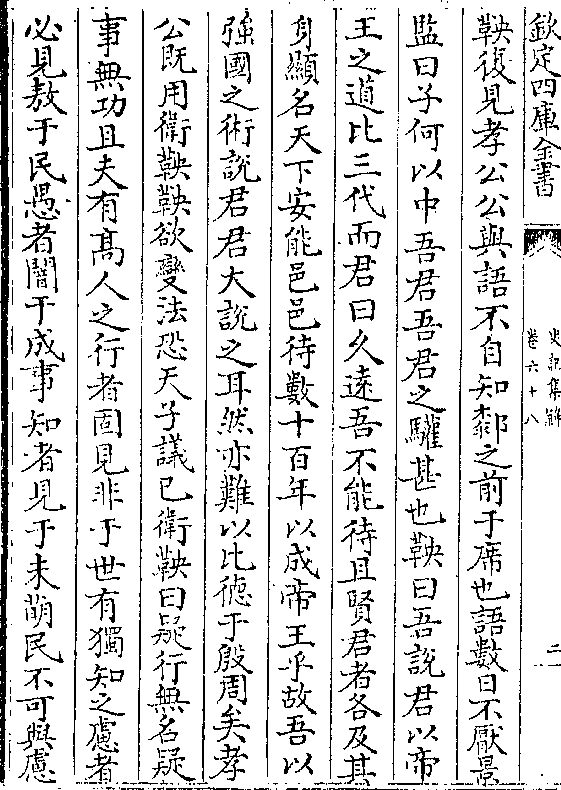 欽定四庫全書
史記集解
卷六十八
二
鞅復見孝公公與語不自知䣛之前于席也語數日不厭景
監曰子何以中吾君吾君之驩甚也鞅曰吾説君以帝
王之道比三代而君曰久遠吾不能待且賢君者各及其
身顯名天下安能邑邑待數十百年以成帝王乎故吾以
強國之術說君君大說之耳然亦難以比德于殷周矣孝
公既用衛鞅鞅欲變法恐天子議已衛鞅曰疑行無名疑
事無功且夫有髙人之行者固見非于世有獨知之慮者
必見敖于民愚者闇于成事知者見于未萌民不可與慮